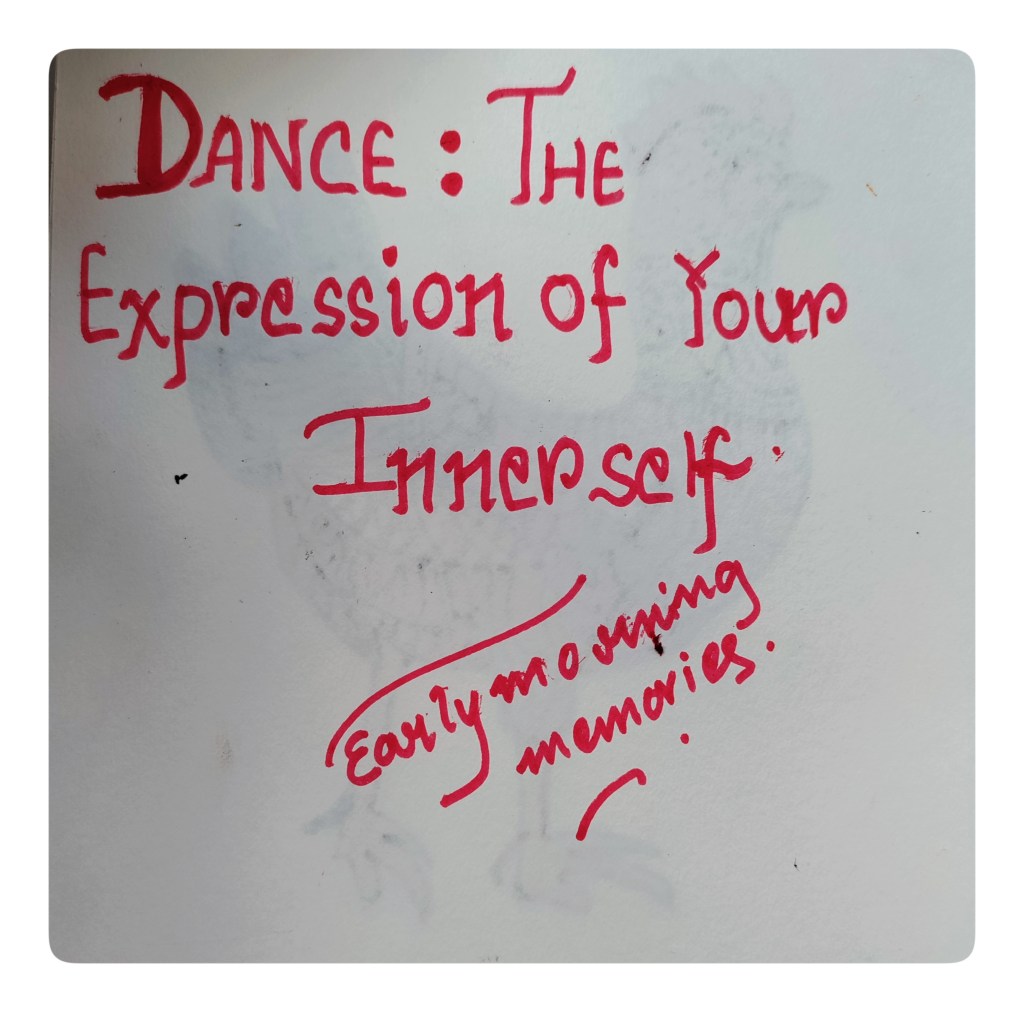 DANCE: THE
Expression of Your
Innerself.
Early morning
memories.